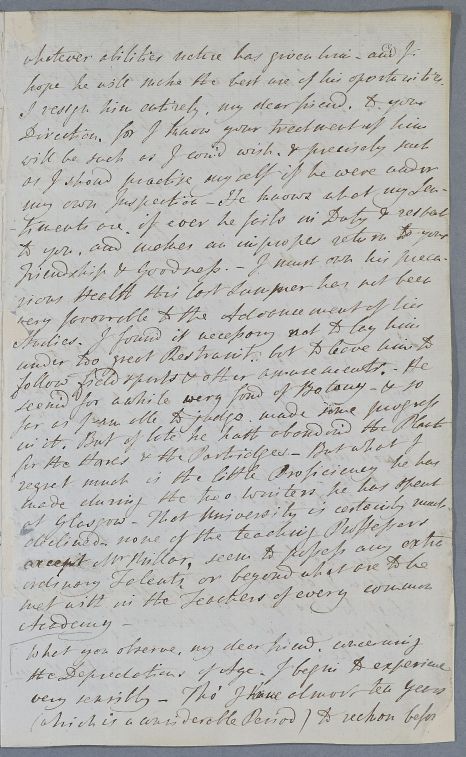 whatever abilities nature has given him - and I
hope he will make the best use of his oportunities.
I resign him entirely, my dear friend, to your
Direction, for I know your treatment of him
will be such as I cou'd wish, & precisely such
as I shoud practise myself if he were under
my own Inspection - He knows what my Sen-
timents are, if ever he fails in Duty & respect
to you, and makes an improper return to your
Friendship & Goodness. - I must own his preca-
rious Health this last Summer has not been
very favourable to the Advancement of his
Studies. I found it necessary not to lay him
under too great Restraint, but to leave him to
follow field sports & other amusements. - He
seem'd for a while very fond of Botany - & so
far as I am able to judge, made some progress
in it. But of late he hath abandon'd the Plants
for the Hares & the Partridges - But what I
regret much is the little Proficiency he has
made during the two winters he has spent
at Glasgow - That University is certainly much
declined. none of the teaching Professors
except Mr Millar, seem to possess any extra
ordinary Talents, or beyond what are to be
met with in the Teachers of every common
Academy -
What you observe, my dear friend, concerning
the Depredations of Age, I begin to experience
very sensibly - Tho' I have almost ten Years
(which is a considerable Period) to reckon befor